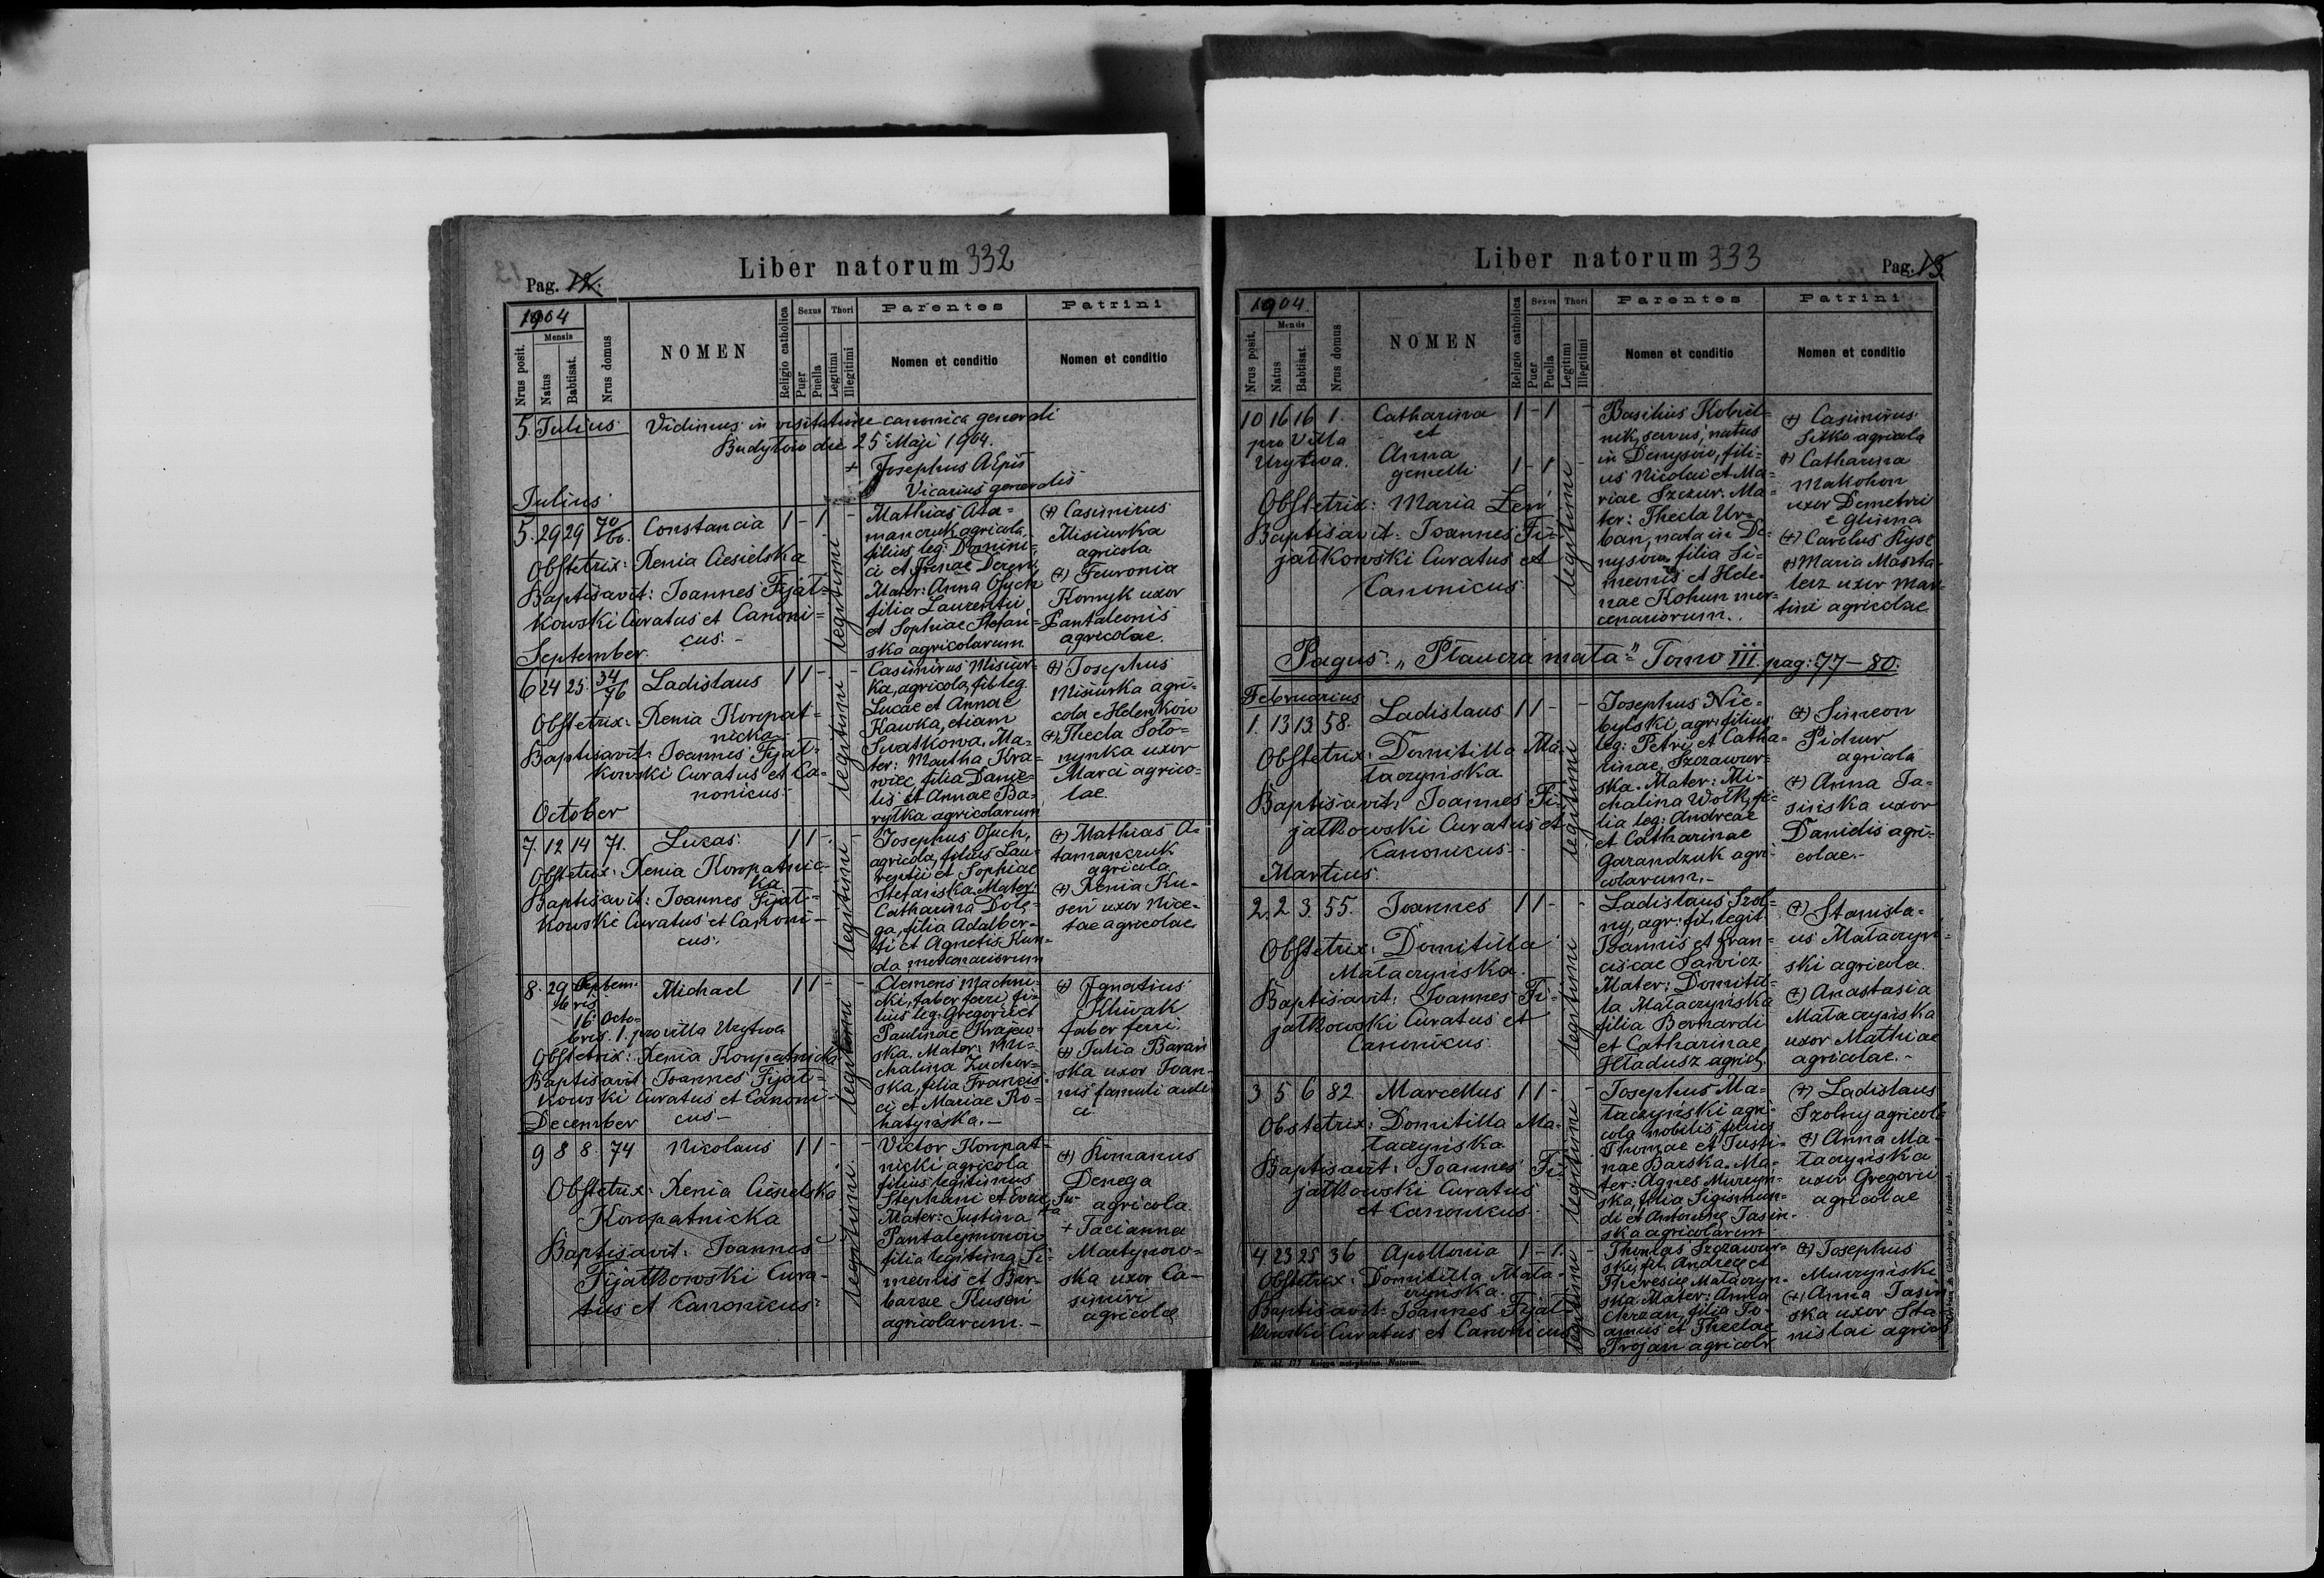 Liber natorum 332
Pag. 12.
1904
Nrus posit.
Mensis
Natus
Babtisat.
Nrus domus
NOMEN
Religio catholica
Sexus
Puer
Puella
Thori
Legitimi
Illegitimi
Parentes
Nomen et conditio
Patrini
Nomen et conditio
5. Julius
Vidimus in visitatione canonica generali
Budyłów die 25 Maji 1904.
+ Josephus AEpus
Vicarius generalis
Julius
5. 29 29 70/60. Constancia 1 - 1 -
Obstetrix: Xenia Ciesielska
Baptisavit: Joannes Fijał-
kowski Curatus et Canoni-
cus.-
legitimi
Mathias Ata-
manczuk agricola,
filius leg: Domini-
ci et Irenae
Mater: Anna Osuch
filia Laurentii
et Sophiae Stefań-
ska agricolarum
(+) Casimirus
Misiurka
agricola
(+) Feuronia
Kornyk uxor
Pantaleonis
agricolae.
September.
6 24 25. 34/76 Ladislaus 1 1 - -
Obstetrix: Xenia Koropat-
nicka
Baptisavit: Joannes Fijał-
kowski Curatus et Ca-
nonicus.-
legitimi
Casimirus Misiur-
ka, agricola, fil. leg.
Lucae et Annae
Kawka, etiam
Swatkowa. Ma-
ter: Martha Kra-
wiec, filia Danie-
lis et Annae Ba-
ryłka agricolarum
(+) Josephus
Misiurka agri-
cola e Helenków
(+) Thecla Soło-
nynka uxor
Marci agrico-
lae.
October
7. 12 14 71. Lucas. 1 1 - -
Obstetrix: Xenia Koropatnic-
ka
Baptisavit: Joannes Fijał-
kowski Curatus et Canoni-
cus.
legitimi
Josephus Osuch,
agricola, filius Lau-
rentii et Sophiae
Stefańska. Mater:
Catharina Dołę-
ga, filia Adalber-
ti et Agnetis Kun-
da mercenariorum
(+) Mathias A-
tamanczuk
agricola
(+) Xenia Ku-
seń uxor Nice-
tae agricolae.
8. 29 Septem-
bris
16. Octo-
bris. 1. pro villa Urytwa
Michael 1 1 - -
Obstetrix: Xenia Koropatnicka
Baptisavit: Joannes Fijał-
kowski Curatus et Canoni-
cus-
legitimi
Clemens Machni-
cki, faber ferri, fi-
lius leg. Gregorii et
Paulinae Krajew-
ska. Mater: Mi-
chalina Zuchor-
ska, filia Francis-
ci et Mariae Ro-
hatyńska.-
(+) Ignatius
Kliwak
faber ferri.
(+) Julia Barań
ska uxor Joan-
nis famuli auli-
ci
December
9 8 8. 74 Nicolaus 1 1 - -
Obstetrix: Xenia Ciesielska
Koropatnicka
Baptisavit: Joannes
Fijałkowski Cura-
tus et Canonicus.-
legitimi.
Victor Koropat-
nicki agricola
filius legitimus
Stephani et Evae
Mater: Justina
Pantalejmonów
filia legitima Si-
meonis et Bar-
barae Kuseń
agricolarum.-
(+) Romanus
Denega
agricola.
+ Tacianna
Martynow-
ska uxor Ca-
simiri
agricolae
Liber natorum 333
Pag. 13
1904.
Nrus posit.
Mensis
Natus
Babtisat.
Nrus domus
NOMEN
Religio catholica
Sexus
Puer
Puella
Thori
Legitimi
Illegitimi
Parentes
Nomen et conditio
Patrini
Nomen et conditio
10 16 16 1. Catharina 1 - 1 -
pro Villa
Urytwa.
et
Anna
gemelli 1 - 1 -
Obstetrix: Maria Żeń
Baptisavit: Joannes Fi-
jałkowski Curatus et
Canonicus.
legitimi
Basilius Kobiel-
nik, servus, natus
in Denysów, fili-
us Nicolai et Ma-
riae Szczur. Ma-
ter: Thecla Ur-
ban, nata in De-
nysów, filia Si-
meonis et Hele-
nae Kohun mer-
cenariorum.
(+) Casimirus
Sitko agricola
(+) Catharina
Makohon
uxor Demetrii
e Glinna
(+) Carolus Ryse
(+) Maria Maszta-
lerz uxor Mar-
tini agricolae.
Pagus: „Płaucza mała" Tomo III. pag: 77-80.
Februarius
1. 13 13. 58. Ladislaus 1 1 - -
Obstetrix: Domitilla Ma-
łaczyńska
Baptisavit: Joannes Fi-
jałkowski Curatus et
Canonicus.-
legitimi
Josephus Nie-
bylski, agr: filius
leg: Petri et Catha-
rinae, Szczawur-
ska. Mater: Mi-
chalina Wołk, fi-
lia leg: Andreae
et Catharinae
Garandzuk agri-
colarum.-
(+) Simeon
Pidhur
agricola
(+) Anna Ja-
sińska uxor
Danielis agri-
colae.-
Martius.
2. 2 3. 55. Joannes 1 1 - -
Obstetrix: Domitilla
Małaczyńska.
Baptisavit: Joannes Fi-
jałkowski Curatus et
Canonicus.
legitimi
Ladislaus Szol-
ny, agr: fil. legit.
Joannis et Fran-
ciscae Sawicz.
Mater: Domitil-
la Małaczyńska
filia Bernardi
et Catharinae
Hładusz agricol.
(+) Stanisla-
us Małaczyń-
ski agricola.
(+) Anastasia
Małaczyńska
uxor Mathiae
agricolae.-
3 5 6 82 Marcellus 1 1 - -
Obstetrix: Domitilla Ma-
łaczyńska
Baptisavit: Joannes Fi-
jałkowski Curatus
et Canonicus.
legitimi
Josephus Ma-
łaczyński agri-
cola nobilis, filius
Thomae et Justi-
nae Barska. Ma-
ter: Agnes Murzyń-
ska, filia Sigismun-
di et Antoninae Jasiń-
ska agricolarum
(+) Ladislaus
Szolny agricola
(+) Anna Ma-
łaczyńska
uxor Gregorii
agricolae
4 23 25 36 Apollonia 1 - 1. -
Obstetrix: Domitilla Mała-
czyńska.
Baptisavit: Joannes Fijał-
kowski Curatus et Canonicus
legitimi
Thomas Szczawur-
ski, fil. Andreae et
Theresiae Małaczyń-
ska. Mater: Anna
Chrzan, filia Jo-
annis et Theclae
Trojan agricolr
(+) Josephus
Murzyński
(+) Anna Jasiń
ska uxor Sta-
nislai agricol
Nr. skł. 177 Księga metrykalna. Natorum.